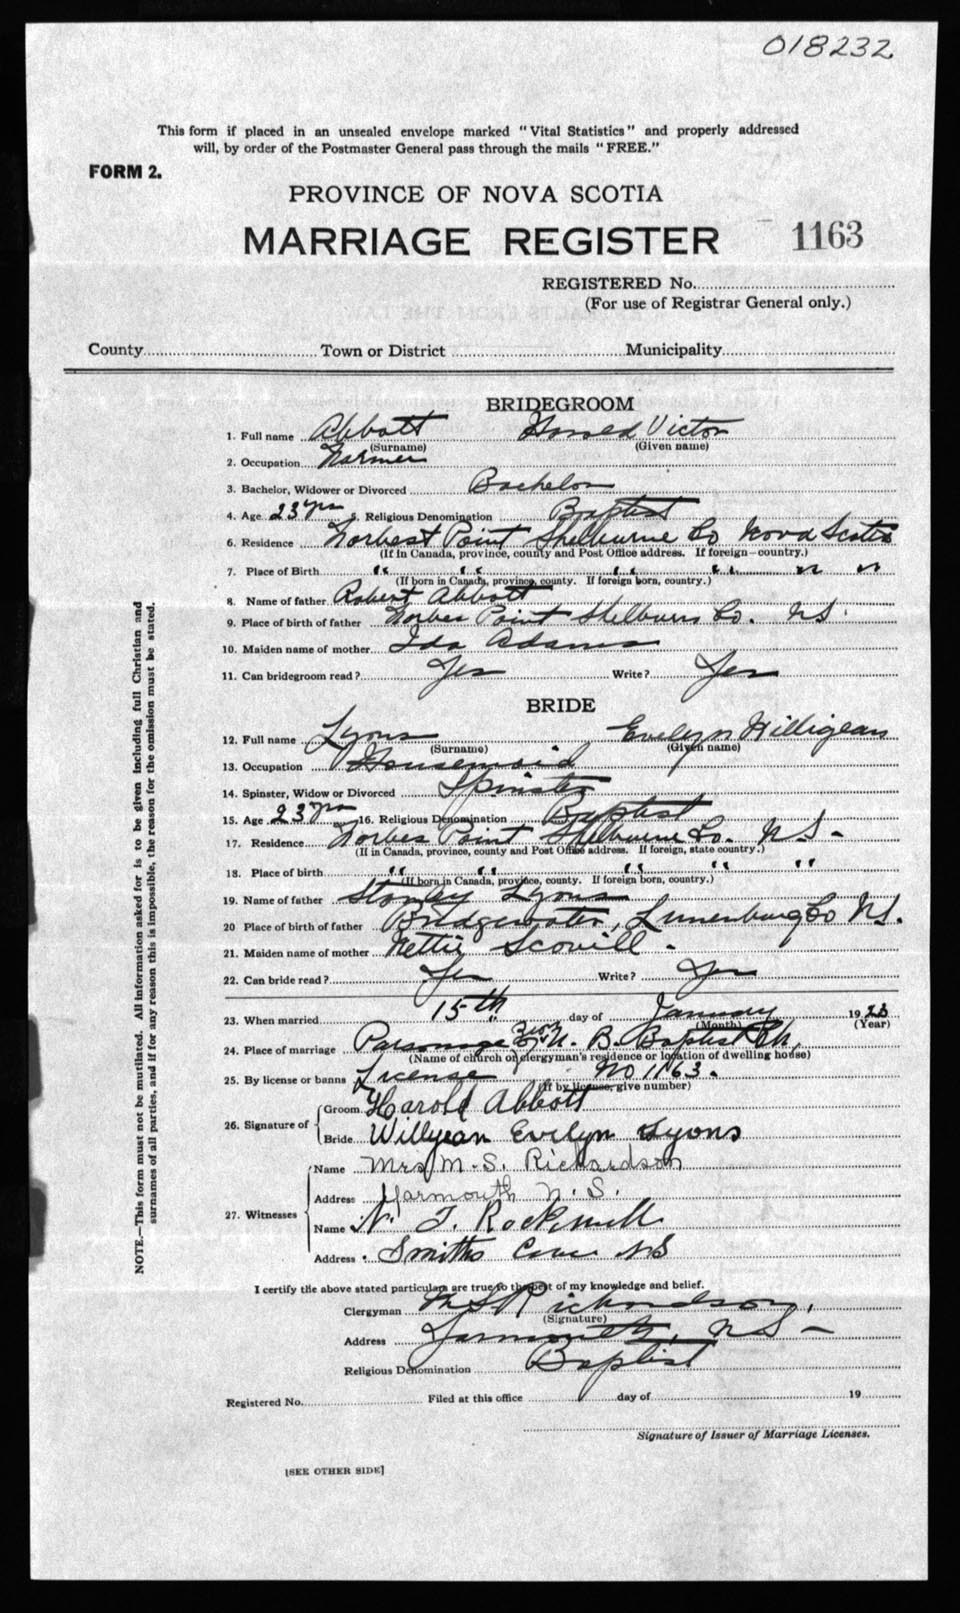 018232
This form if placed in an unsealed envelope marked "Vital Statistics" and properly addressed
will, by order of the Postmaster General pass through the mails "FREE."
FORM 2.
PROVINCE OF NOVA SCOTIA
MARRIAGE REGISTER 1163
REGISTERED No.
(For use of Registrar General only.)
County Town or District Municipality
BRIDEGROOM
1. Full name Abbott Harold Victor
(Surname) (Given name)
2. Occupation Farmer
3. Bachelor, Widower or Divorced Bachelor
4. Age 23 yrs 5. Religious Denomination Baptist
6. Residence Forbest Point Shelburne Co Nova Scotia
(If in Canada, province, county and Post Office address. If foreign—country.)
7. Place of Birth " " " " " "
(If born in Canada, province, county. If foreign born, country.)
8. Name of father Robert Abbott
9. Place of birth of father Forbes Point Shelburn Co. NS.
10. Maiden name of mother Ida Adams
11. Can bridegroom read? Yes Write? Yes
BRIDE
12. Full name Lyons Evelyn Willigean
(Surname) (Given name)
13. Occupation Housemaid
14. Spinster, Widow or Divorced Spinster
15. Age 23 yrs 16. Religious Denomination Baptist
17. Residence Forbes Point Shelburne Co. N.S-
(If in Canada, province, county and Post Office address. If foreign, state country.)
18. Place of birth " " " " "
(If born in Canada, province, county. If foreign born, country.)
19. Name of father Stanley Lyons
20 Place of birth of father Bridgewater, Lunenburg Co NS.
21. Maiden name of mother Nettie Scovill.
22. Can bride read? Yes Write? Yes
23. When married 15th day of January 1923
(Month) (Year)
24. Place of marriage Parsonage Zion U. B. Baptist Ch,
(Name of church or clergyman's residence or location of dwelling house)
25. By license or banns License No 1163.
(If by license, give number)
26. Signature of Groom Harold Abbott
Bride Willyean Evelyn Lyons
27. Witnesses Name Mrs M. S. Richardson
Address Yarmouth N. S.
Name N. T. Rockwell
Address Smiths Cove NS
I certify the above stated particulars are true to the best of my knowledge and belief.
Clergyman M S Richardson,
(Signature)
Address Yarmouth, NS-
Religious Denomination Baptist
Registered No. Filed at this office day of 19
Signature of Issuer of Marriage Licenses.
[SEE OTHER SIDE]
NOTE.—This form must not be mutilated. All information asked for is to be given including full Christian and
surnames of all parties, and if for any reason this is impossible, the reason for the omission must be stated.